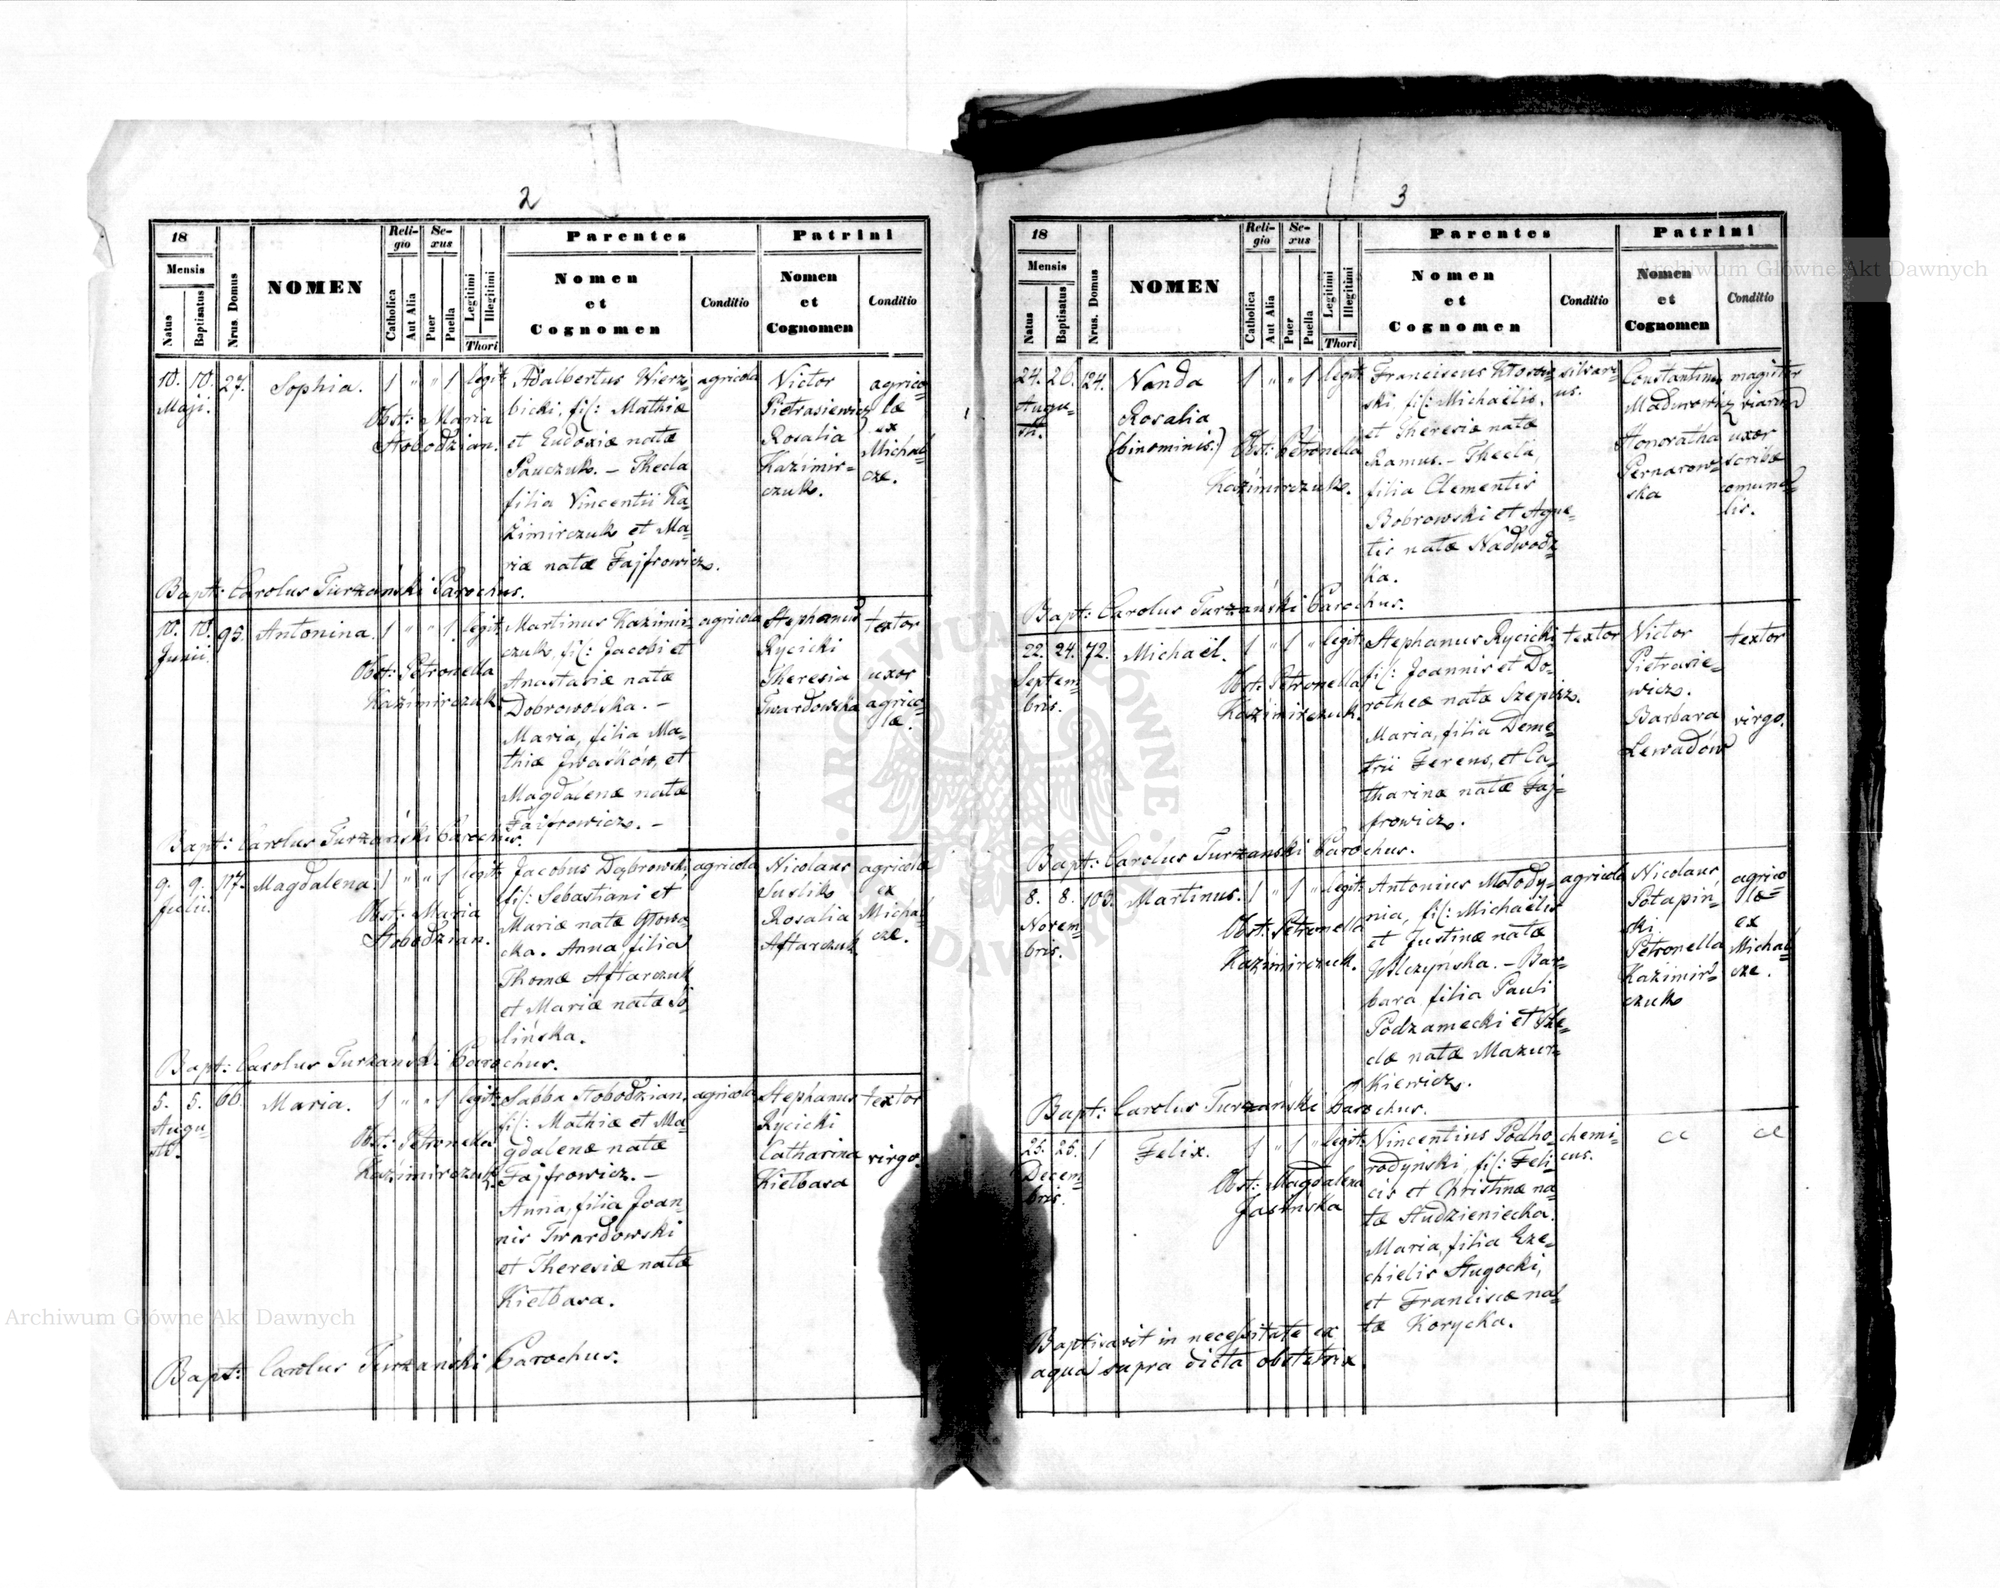 2
18
Mensis
Natus
Baptisatus
Nrus. Domus
NOMEN
Reli-
gio
Catholica
Aut Alia
Se-
xus
Puer
Puella
Legitimi
Illegitimi
Thori
Parentes
Nomen
et
Cognomen
Conditio
Patrini
Nomen
et
Cognomen
Conditio
10. 10. 27. Sophia. 1 " " 1 legit:
Maji.
Obst: Maria
Słobodzian.
Adalbertus Wierz=
bicki, fil: Mathiæ
et Eudoxiæ natæ
Pauczuk. – Thecla
filia Vincentii Ka=
zimirczuk et Ma=
riæ natæ Fajfrowicz.
agricola
Victor
Pietrasiewicz
Rosalia
Kazimir=
czuk.
agrico=
læ
ex
Michał=
cze.
Bapt: Carolus Turzański Parochus.
10. 10. 95. Antonina. 1 " " 1. legit:
Junii.
Obst: Petronella
Kazimirczuk.
Martinus Kazimir=
czuk, fil: Jacobi et
Anastasiæ natæ
Dobrowolska. –
Maria, filia Ma=
thiæ Iwasków, et
Magdalenæ natæ
Fajfrowicz. –
agricola
Stephanus
Rycicki
Theresia
Twardowska
textor
uxor
agrico=
læ.
Bapt: Carolus Turzański Parochus.
9. 9. 117. Magdalena. 1 " " 1 legit:
Julii.
Obst: Maria
Słobodzian.
Jacobus Dąbrowski,
fil: Sebastiani et
Mariæ natæ Głowa=
cka. Anna filia
Thomæ Aftarczuk
et Mariæ natæ So=
lińska.
agricola
Nicolaus
Juslik
Rosalia
Aftarczuk.
agricolæ
ex
Michał=
cze.
Bapt: Carolus Turzański Parochus.
5. 5. 66. Maria. 1 " " 1 legit:
Augu=
sti.
Obst: Petronella
Kazimirczuk.
Sabba Słobodzian,
fil: Mathiæ et Ma=
gdalenæ natæ
Fajfrowicz. –
Anna, filia Joan=
nis Twardowski
et Theresiæ natæ
Kiełbasa.
agricola
Stephanus
Rycicki
Catharina
Kiełbasa
textor
virgo.
Bapt: Carolus Turzański Parochus.
3
18
Mensis
Natus
Baptisatus
Nrus. Domus
NOMEN
Reli-
gio
Catholica
Aut Alia
Se-
xus
Puer
Puella
Legitimi
Illegitimi
Thori
Parentes
Nomen
et
Cognomen
Conditio
Patrini
Nomen
et
Cognomen
Conditio
24. 26. 124. Vanda 1 " " 1 legit:
Augu=
sti.
Rosalia
(binominus.)
Obst: Petronella
Kazimirczuk.
Franciscus Kłosow=
ski, fil: Michaëlis,
et Theresiæ natæ
Ramus. – Thecla,
filia Clementis
Bobrowski et Agne=
tis natæ Nadwodz=
ka.
silvar=
us.
Constantinus
Madurowicz
Honoratha
Pernarow=
ska
magister
viarum
uxor
scribæ
comuna=
lis.
Bapt: Carolus Turzański Parochus.
22. 24. 72. Michaël. 1 " 1 " legit:
Septem=
bris.
Obst: Petronella
Kazimirczuk.
Stephanus Rycicki
fil: Joannis et Do=
rotheæ natæ Szepizz.
Maria, filia Deme=
trii Ferens, et Ca=
tharinæ natæ Faj=
frowicz.
textor
Victor
Pietrasie=
wicz.
Barbara
Lewadów
textor
virgo.
Bapt: Carolus Turzański Parochus.
8. 8. 103. Martinus. 1 " 1 " legit:
Novem=
bris.
Obst: Petronella
Kazimirczuk.
Antonius Mołody=
nia, fil: Michaëlis
et Justinæ natæ
Wilczyńska. – Bar=
bara filia Pauli
Podzamecki et
natæ Mazur=
kiewicz.
agricola
Nicolaus
Potapiń=
ski
Petronella
Kazimir=
czuk
agrico=
læ
ex
Michał=
cze.
Bapt: Carolus Turzański Parochus.
25. 25. 1 Felix. 1 " 1 " legit:
Decem=
bris.
Obst: Magdalena
Jasińska
Vincentius Podho=
rodyński, fil: Feli=
cis et Christinæ na=
tæ Studzieniecka.
Maria, filia Eze=
chielis Sługocki,
et Franciscæ na=
tæ Korycka.
chemi=
cus.
Baptisavit in necessitate ex
aqua supra dicta obstetrix.
Archiwum Główne Akt Dawnych
Archiwum Główne Akt Dawnych
ARCHIWUM GŁÓWNE
AKT DAWNYCH